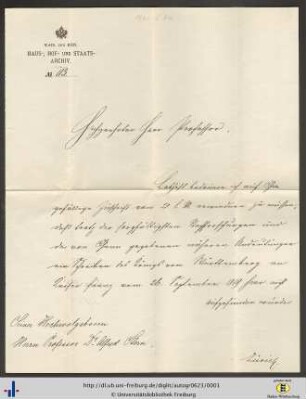 KAIS. UND KÖN.
HAUS-, HOF- UND STAATS-
ARCHIV.
№ 113
Hochgeehrter Herr Professor.
Lebhaft bedauere ich auf Ihre
gefällige Zuschrift vom 21 l. M. erwiedern zu müssen,
daß trotz der sorgfältigsten Nachforschungen und
der von Ihnen gegebenen näheren Andeutungen
ein Schreiben des Königs von Württemberg an
Kaiser Franz vom September 1819 hier nicht
aufgefunden wurde
Seiner Hochwohlgeboren
Herrn Professor Dr. Alfred Stern
Zürich
http://dl.ub.uni-freiburg.de/diglit/autogr0623/0001
© Universitätsbibliothek Freiburg